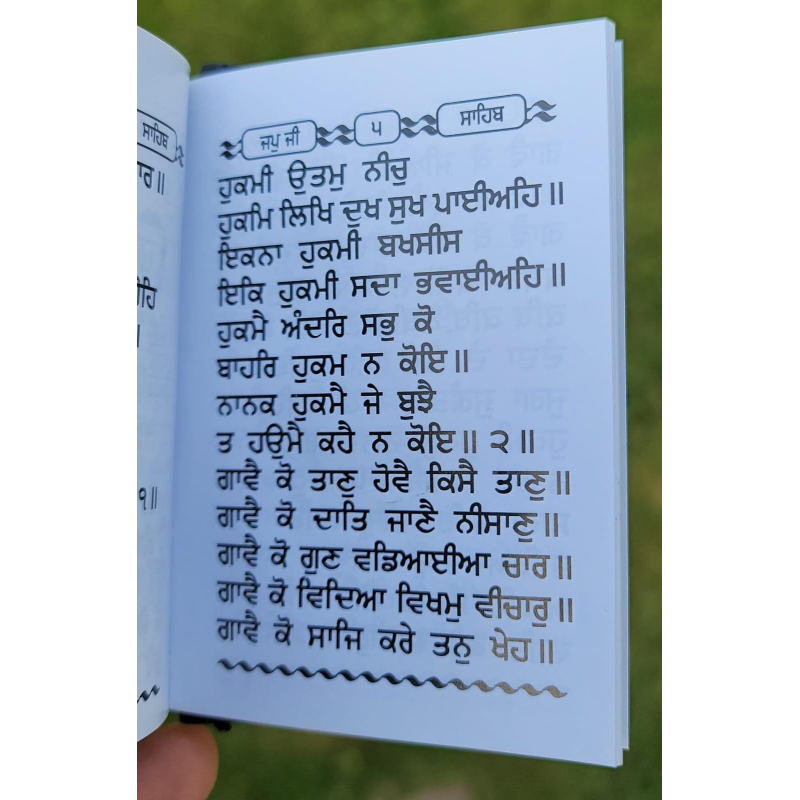 ਸਾਹਿਬ
ਾਰ॥
ਹਿ
॥
੧॥
ਜਪੁ ਜੀ ੫ ਸਾਹਿਬ
ਹੁਕਮੀ ਉਤਮੁ ਨੀਚੁ
ਹੁਕਮਿ ਲਿਖਿ ਦੁਖ ਸੁਖ ਪਾਈਅਹਿ॥
ਇਕਨਾ ਹੁਕਮੀ ਬਖਸੀਸ
ਇਕਿ ਹੁਕਮੀ ਸਦਾ ਭਵਾਈਅਹਿ॥
ਹੁਕਮੈ ਅੰਦਰਿ ਸਭੁ ਕੋ
ਬਾਹਰਿ ਹੁਕਮ ਨ ਕੋਇ॥
ਨਾਨਕ ਹੁਕਮੈ ਜੇ ਬੁਝੈ
ਤ ਹਉਮੈ ਕਹੈ ਨ ਕੋਇ॥੨॥
ਗਾਵੈ ਕੋ ਤਾਣੁ ਹੋਵੈ ਕਿਸੈ ਤਾਣੁ॥
ਗਾਵੈ ਕੋ ਦਾਤਿ ਜਾਣੈ ਨੀਸਾਣੁ॥
ਗਾਵੈ ਕੋ ਗੁਣ ਵਡਿਆਈਆ ਚਾਰ॥
ਗਾਵੈ ਕੋ ਵਿਦਿਆ ਵਿਖਮੁ ਵੀਚਾਰੁ॥
ਗਾਵੈ ਕੋ ਸਾਜਿ ਕਰੇ ਤਨੁ ਖੇਹ॥